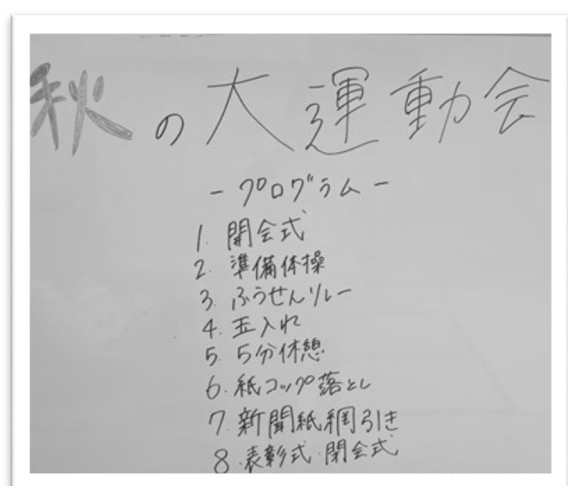 秋の大運動会
-プログラム-
1. 開会式
2. 準備体操
3. ふうせんリレー
4. 玉入れ
5. 5分休憩
6. 紙コップ落とし
7. 新聞紙綱引き
8. 表彰式・閉会式